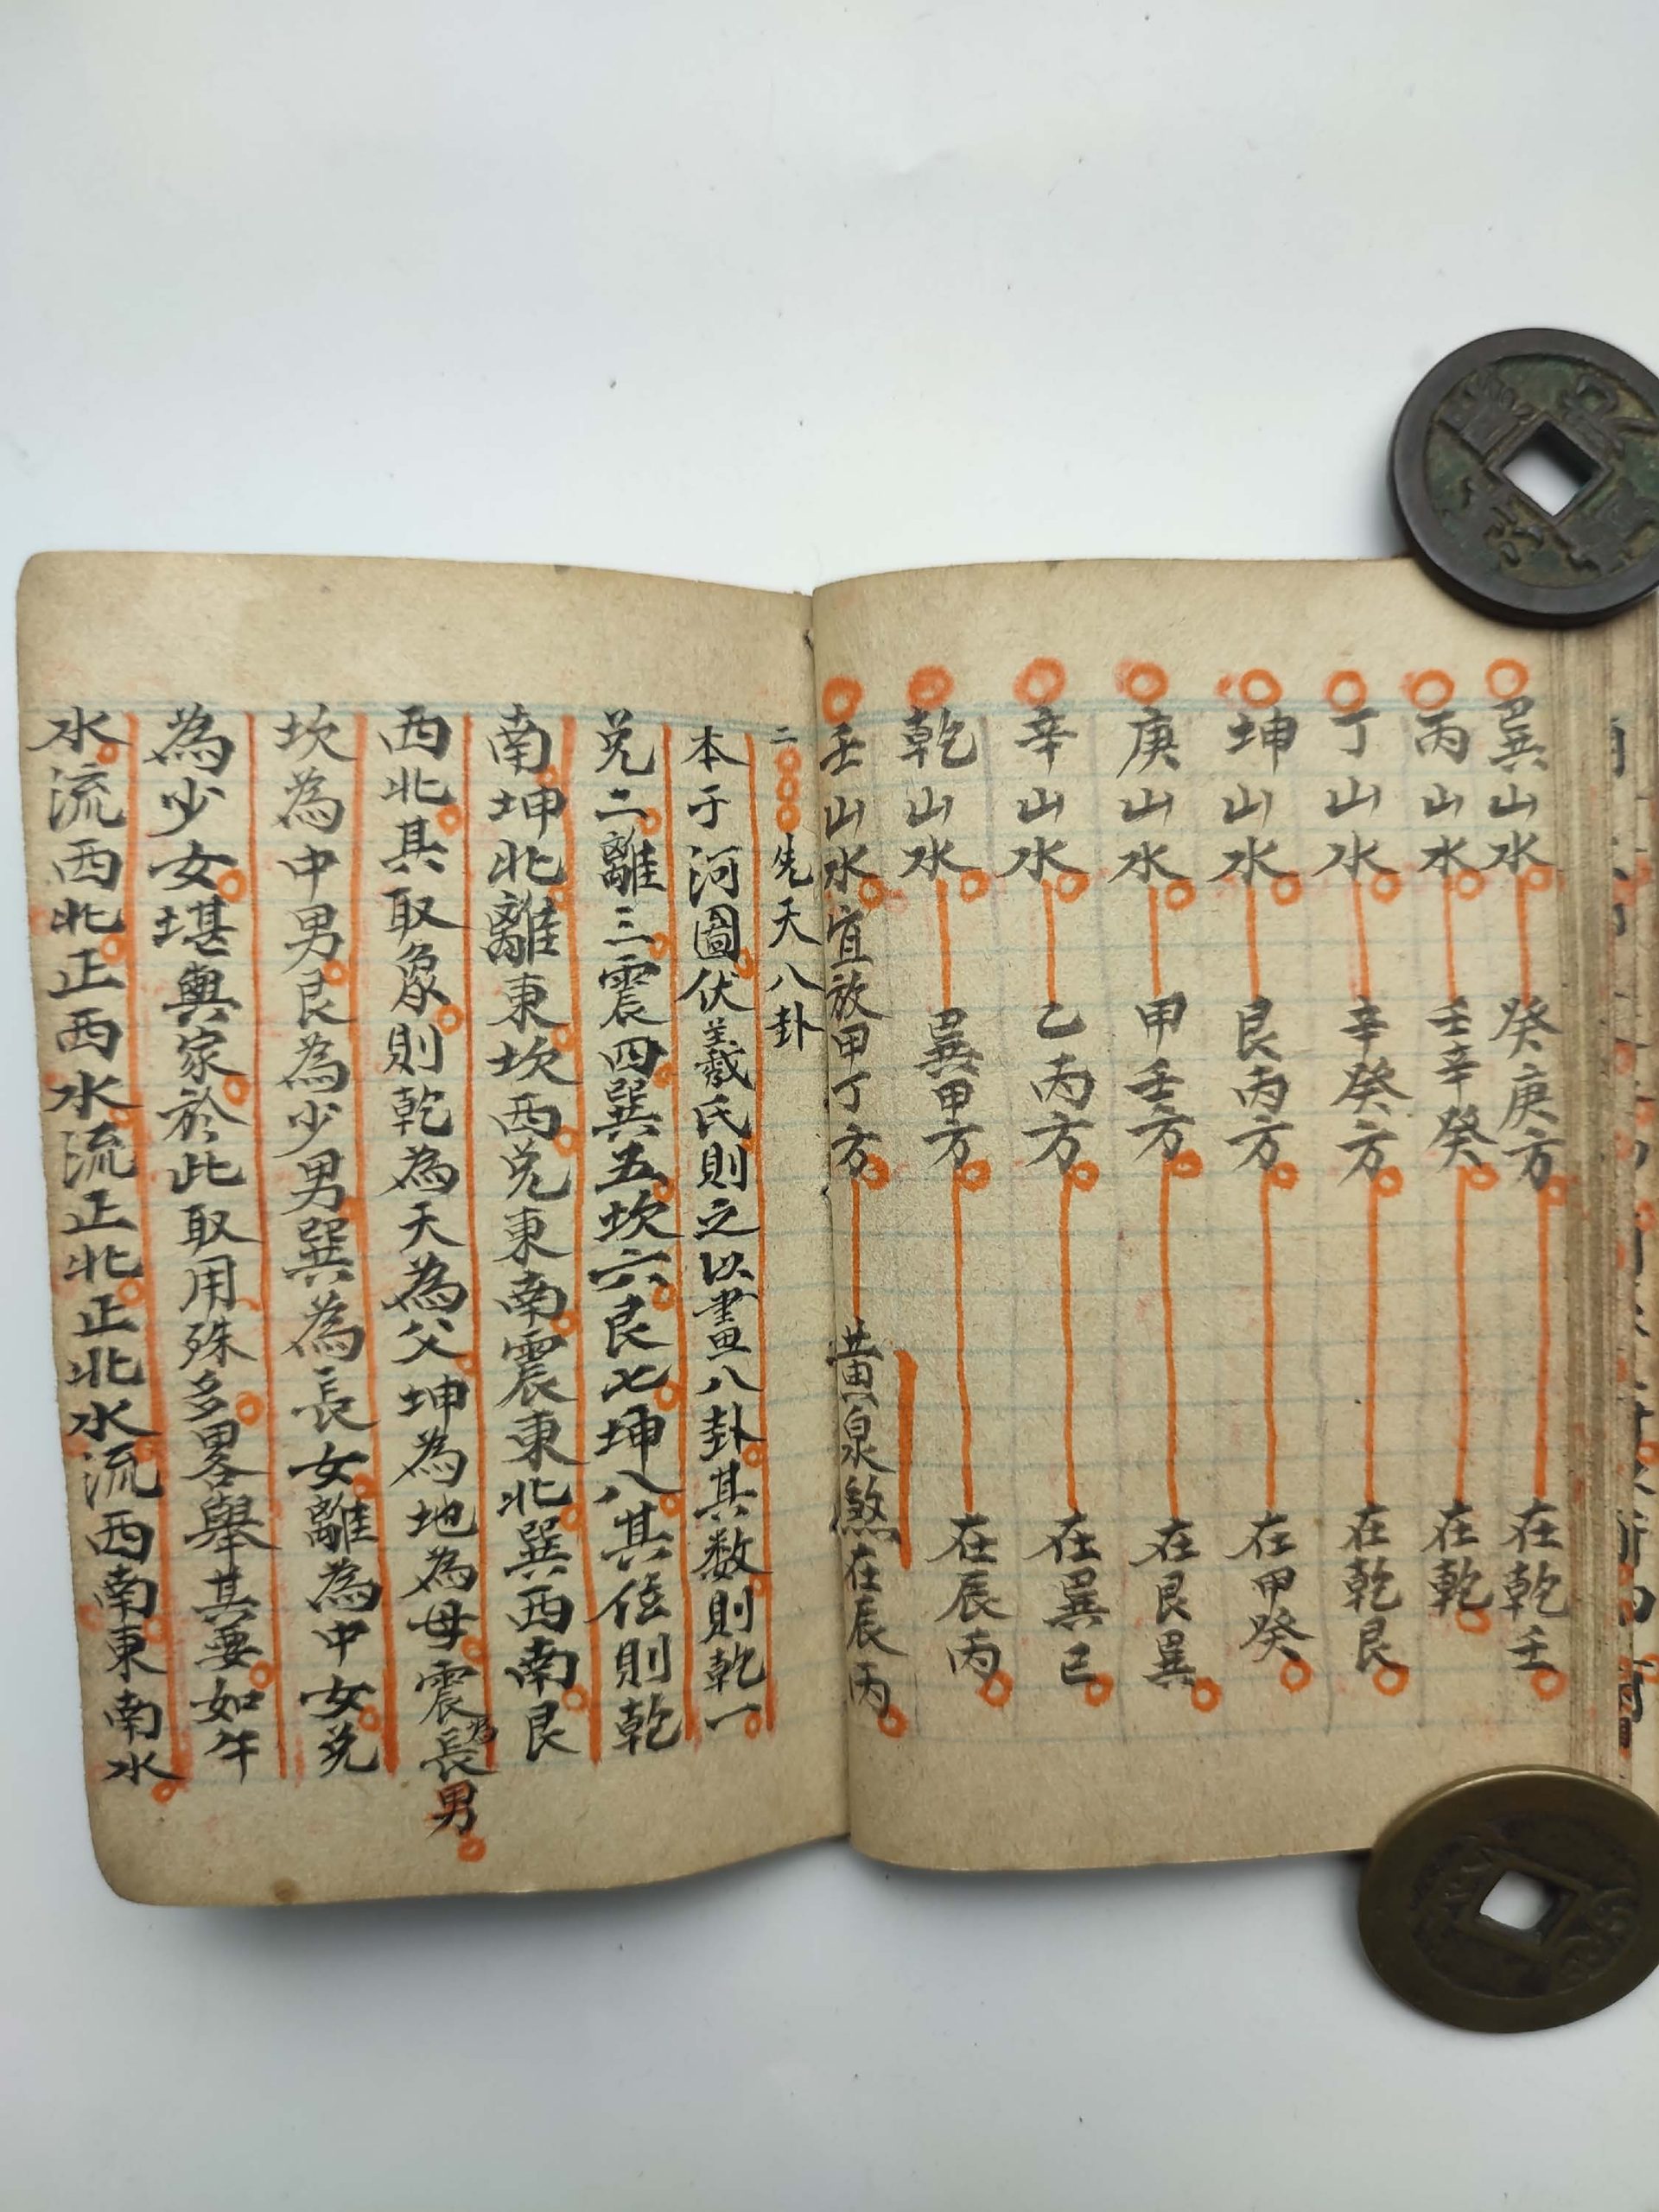 巽山水 癸庚方 在乾壬
丙山水 壬辛癸 在乾
丁山水 辛癸方 在乾艮
坤山水 艮丙方 在甲癸
庚山水 甲壬方 在艮巽
辛山水 乙丙方 在巽巳
乾山水 巽甲方 在辰丙
壬山水宜放甲丁方 黃泉煞在辰丙
二 先天八卦
本于河圖伏羲氏則之以畫八卦其数則乾一
兑二離三震四巽五坎六艮七坤八其位則乾
南坤北離東坎西兑東南震東北巽西南艮
西北其取象則乾為天為父坤為地為母震為長男
坎為中男艮為少男巽為長女離為中女兑
為少女堪輿家於此取用殊多畧舉其要如午
水流西北正西水流正北正北水流西南東南水